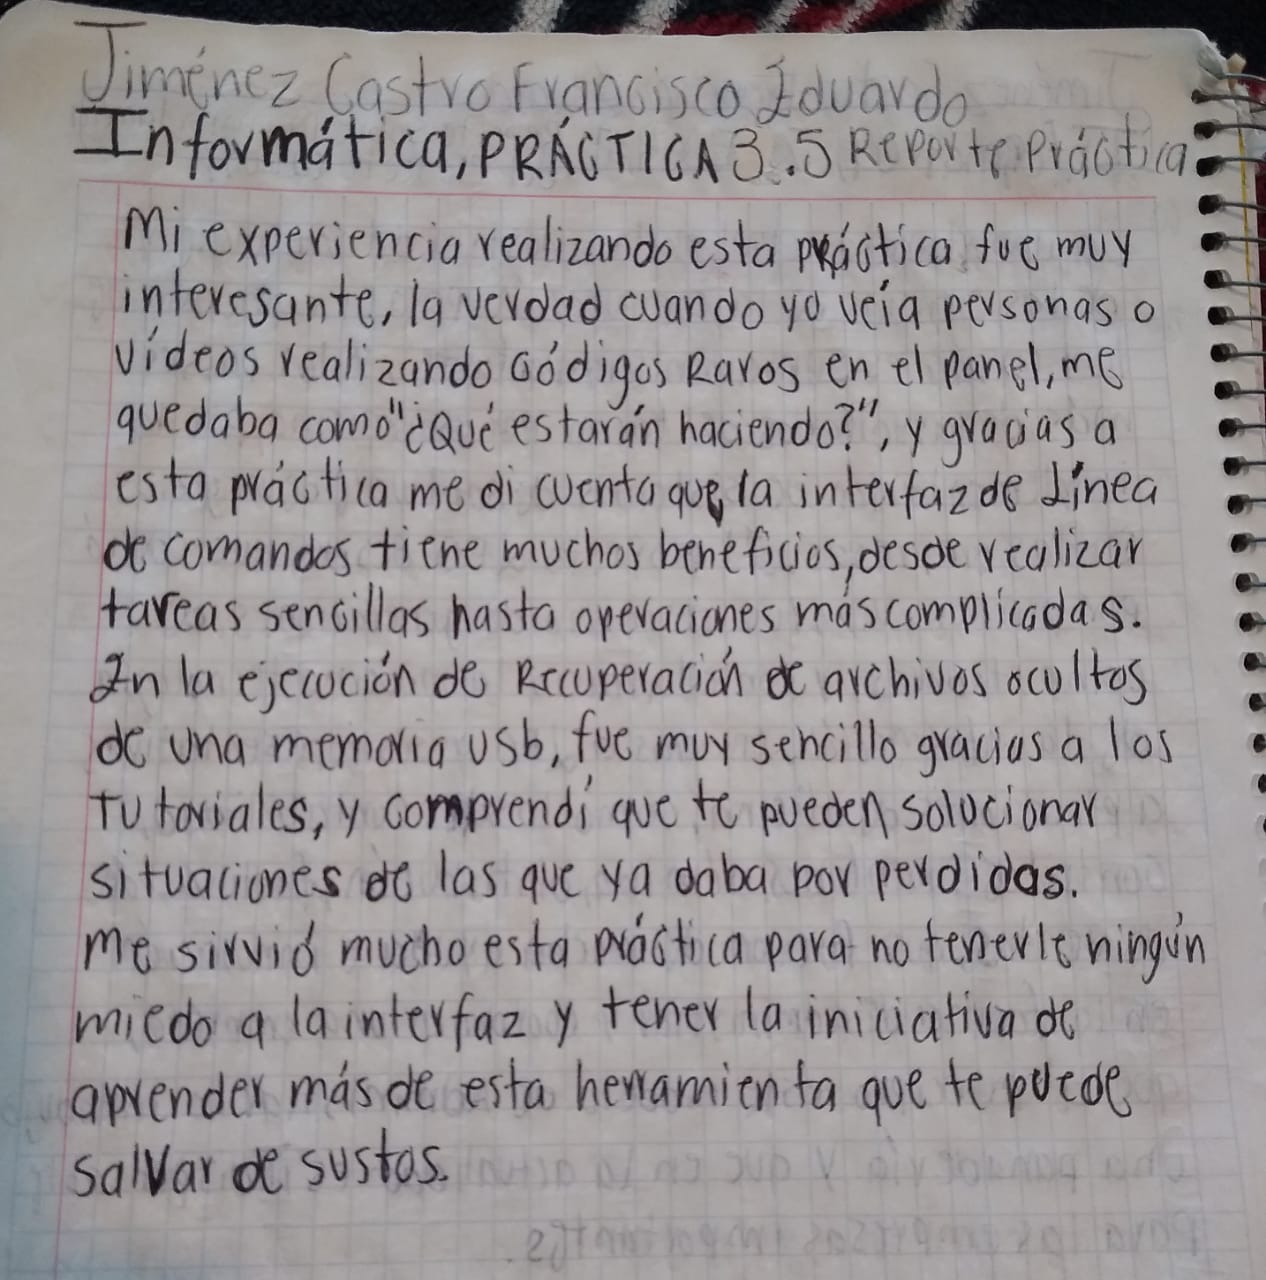 Jiménez Castro Francisco Eduardo
Informática, PRÁCTICA 3.5 Reporte Práctica
Mi experiencia realizando esta práctica fue muy
interesante, la verdad cuando yo veía personas o
vídeos realizando códigos Raros en el panel, me
quedaba como "¿Qué estarán haciendo?", y gracias a
esta práctica me di cuenta que la interfaz de Línea
de comandos tiene muchos beneficios, desde realizar
tareas sencillas hasta operaciones más complicadas.
En la ejecución de Recuperación de archivos ocultos
de una memoria usb, fue muy sencillo gracias a los
tutoriales, y comprendí que te pueden solucionar
situaciones de las que ya daba por perdidas.
Me sirvió mucho esta práctica para no tenerle ningún
miedo a la interfaz y tener la iniciativa de
aprender más de esta herramienta que te puede
salvar de sustos.